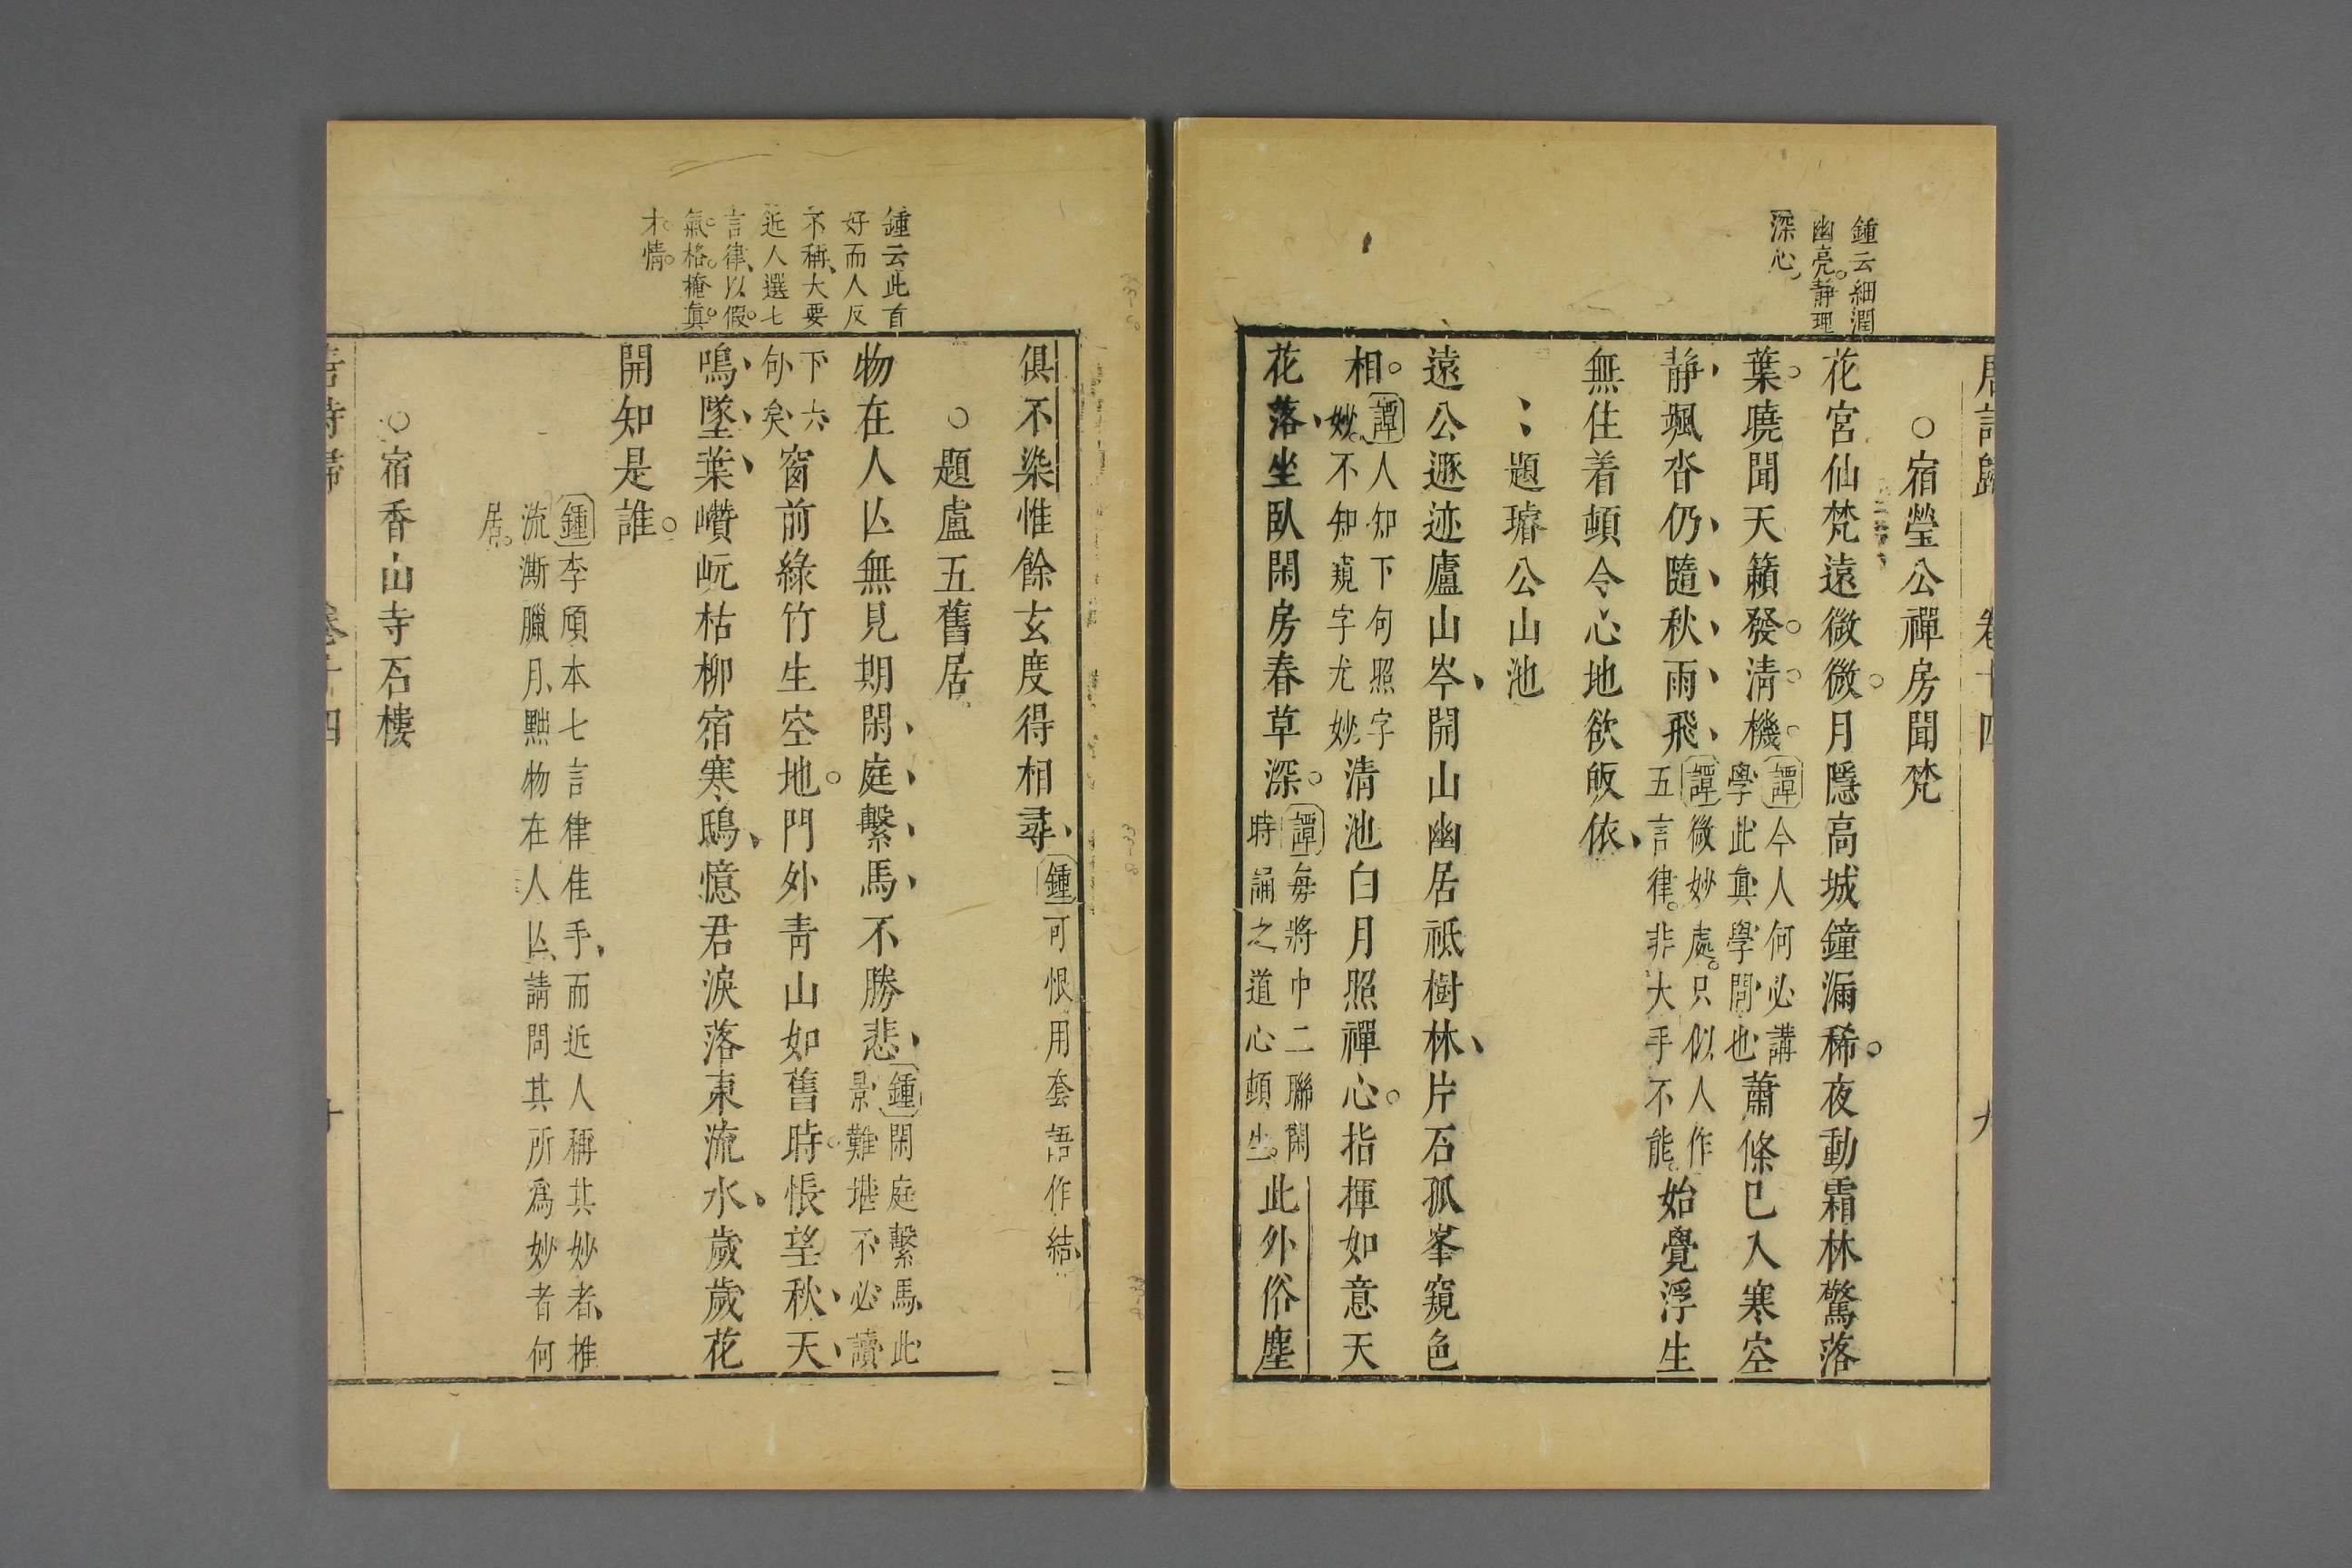 唐詩歸　卷十四　九
鍾云細潤
幽亮靜理
深心
○宿瑩公禪房聞梵
花宮仙梵遠微微月隱高城鐘漏稀夜動霜林驚落
葉曉聞天籟發清機
譚今人何必講
學此真學問也
蕭條已入寒空
靜颯沓仍隨秋雨飛
譚微妙處只似人作
五言律非大手不能
始覺浮生
無住着頓令心地欲皈依
題璿公山池
遠公遯迹廬山岑開山幽居祗樹林片石孤峯窺色
相
譚人知下句照字
妙不知窺字尤妙
清池白月照禪心指揮如意天
花落坐臥閑房春草深
譚每將中二聯閑
時誦之道心頓生
此外俗塵
俱不染惟餘玄度得相尋
鍾可恨用套語作結
鍾云此首
好而人反
不稱大要
近人選七
言律以假
氣格掩眞
才情
○題盧五舊居
物在人亾無見期閑庭繫馬不勝悲
鍾閑庭繫馬此
景難堪不必讀
下六
句矣
窗前綠竹生空地門外青山如舊時悵望秋天
鳴墜葉巑岏枯柳宿寒鴟憶君淚落東流水歲歲花
開知是誰
鍾李頎本七言律佳手而近人稱其妙者推
流澌臘月黙物在人亾請問其所爲妙者何
居
○宿香山寺石樓
唐詩歸　卷十四　十